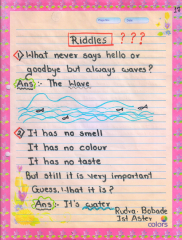 Riddles ? ? ?
1 What never says hello or
goodbye but always waves?
Ans : The Wave
2 It has no smell
It has no colour
It has no taste
But still it is very important
Guess, What it is?
Ans : It's water
Rudra Bobade
Ist Aster
colors